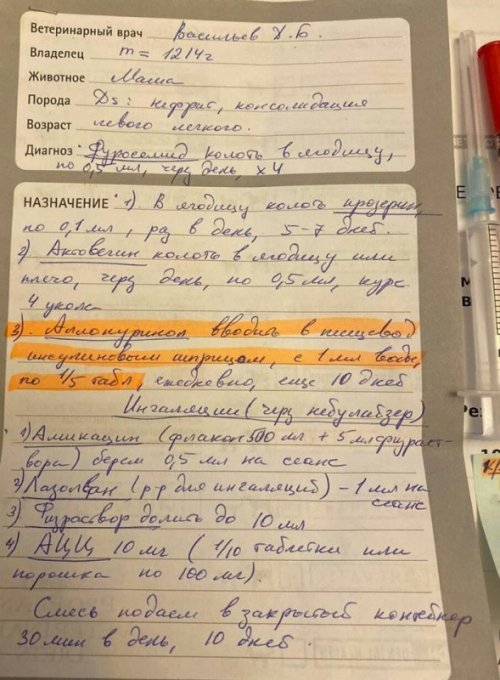 Ветеринарный врач Васильев Д.Б.
Владелец m = 1214г
Животное Мама
Порода Ds: нефрит, консолидация
Возраст левого легкого.
Диагноз Фуросемид колоть в ягодицу,
по 0,5 мл, через день, x4
НАЗНАЧЕНИЕ 1). В ягодицу колоть прозерин,
по 0,1 мл, раз в день, 5-7 дней.
2) Актовегин колоть в ягодицу или
плечо, через день, по 0,5 мл, курс
4 укола
3). Аллопуринол вводить в пищевод
инсулиновым шприцом, с 1 мл воды,
по 1/5 табл, ежедневно, еще 10 дней
Ингаляции (через небулайзер)
1) Амикацин (флакон 500 мл + 5 мл физраст-
вора) берем 0,5 мл на сеанс
2) Лазолван (р-р для ингаляций) - 1 мл на
сеанс
3) Физраствор долить до 10 мл
4) АЦЦ 10 мг (1/10 таблетки или
порошка по 100 мг).
Смесь подаем в закрытый контейнер
30 мин в день, 10 дней.